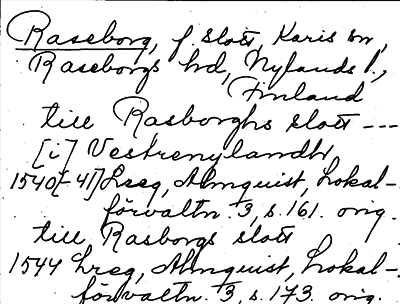 Raseborg, f. slott, Karis sn,
Raseborgs hd, Nylands l.,
Finland
till Rasborghs slott ---
[i] Vestrenylandh
1540[-41] Lreg, Almquist, Lokal-
förvaltn. 3, s. 161. orig.
till Rasborgs slott
1544 Lreg, Almquist, Lokal-
förvaltn. 3, s. 173. orig.